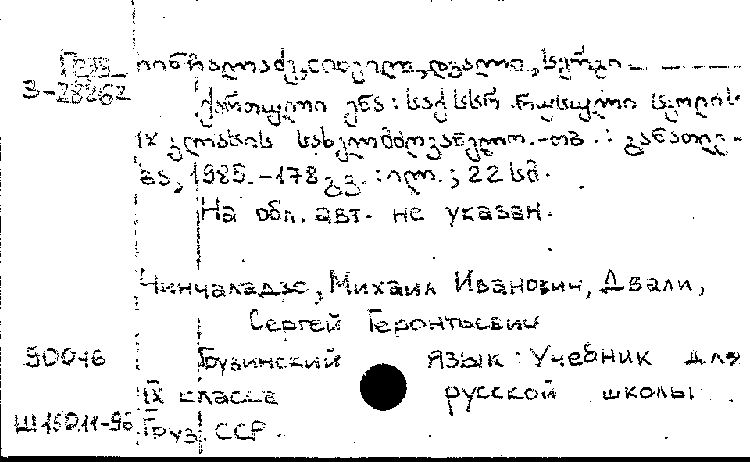 Груз
3-28262
ქართული ენა : საქ. სსრ რუსული სკოლის
IX კლასის სახელმძღვანელო. -თბ. : განათლე-
ბა, 1985. -178 გვ. : ილ. ; 22 სმ.
На обл. авт. не указан.
Чинчаладзе, Михаил Иванович, Двали,
Сергей Геронтьевич
Грузинский язык : Учебник для
IX класса русской школы
Груз. ССР.